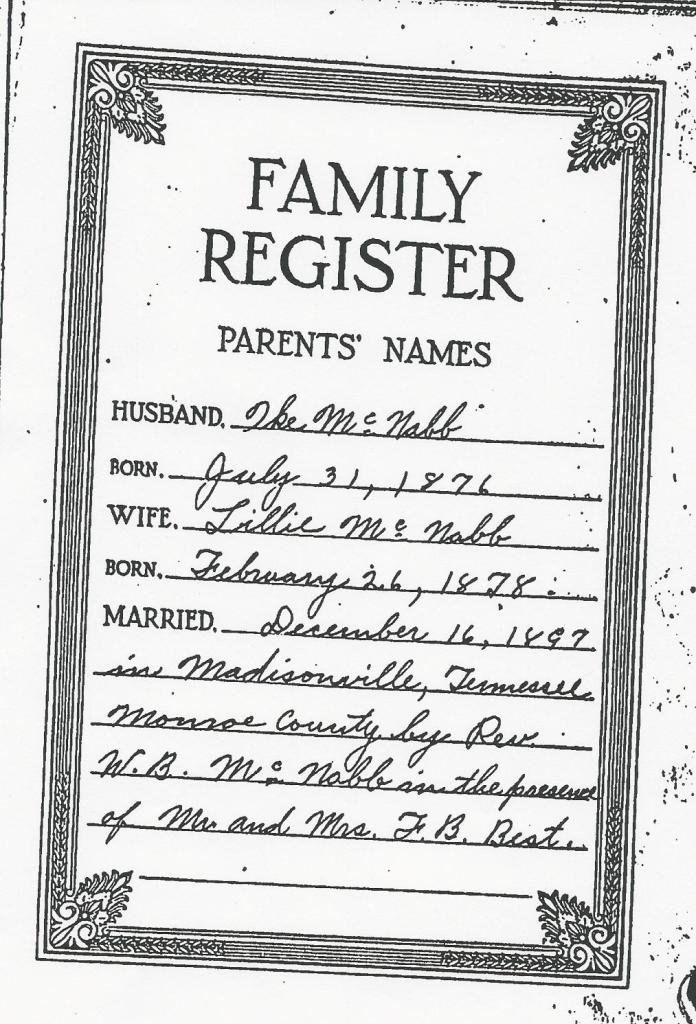 FAMILY
REGISTER
PARENTS' NAMES
HUSBAND. Ike Mc Nabb
BORN. July 31, 1876
WIFE. Lillie Mc Nabb
BORN. February 26, 1878
MARRIED. December 16, 1897
in Madisonville, Tennessee
Monroe County by Rev.
W. B. Mc Nabb in the presence
of Mr. and Mrs. F. B. Best.